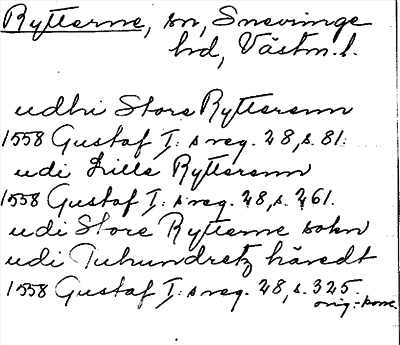 Rytterne, sn, Snevringe
hd, Västm.l.
udhi Store Rytterenn
1558 Gustaf I:s reg. 28, s. 81.
udi Lille Rytterenn
1558 Gustaf I:s reg. 28, s. 261.
udi Store Rytterne sokn
udi Tuhundretz häredt
1558 Gustaf I:s reg. 28, s. 325.
orig.-konc.